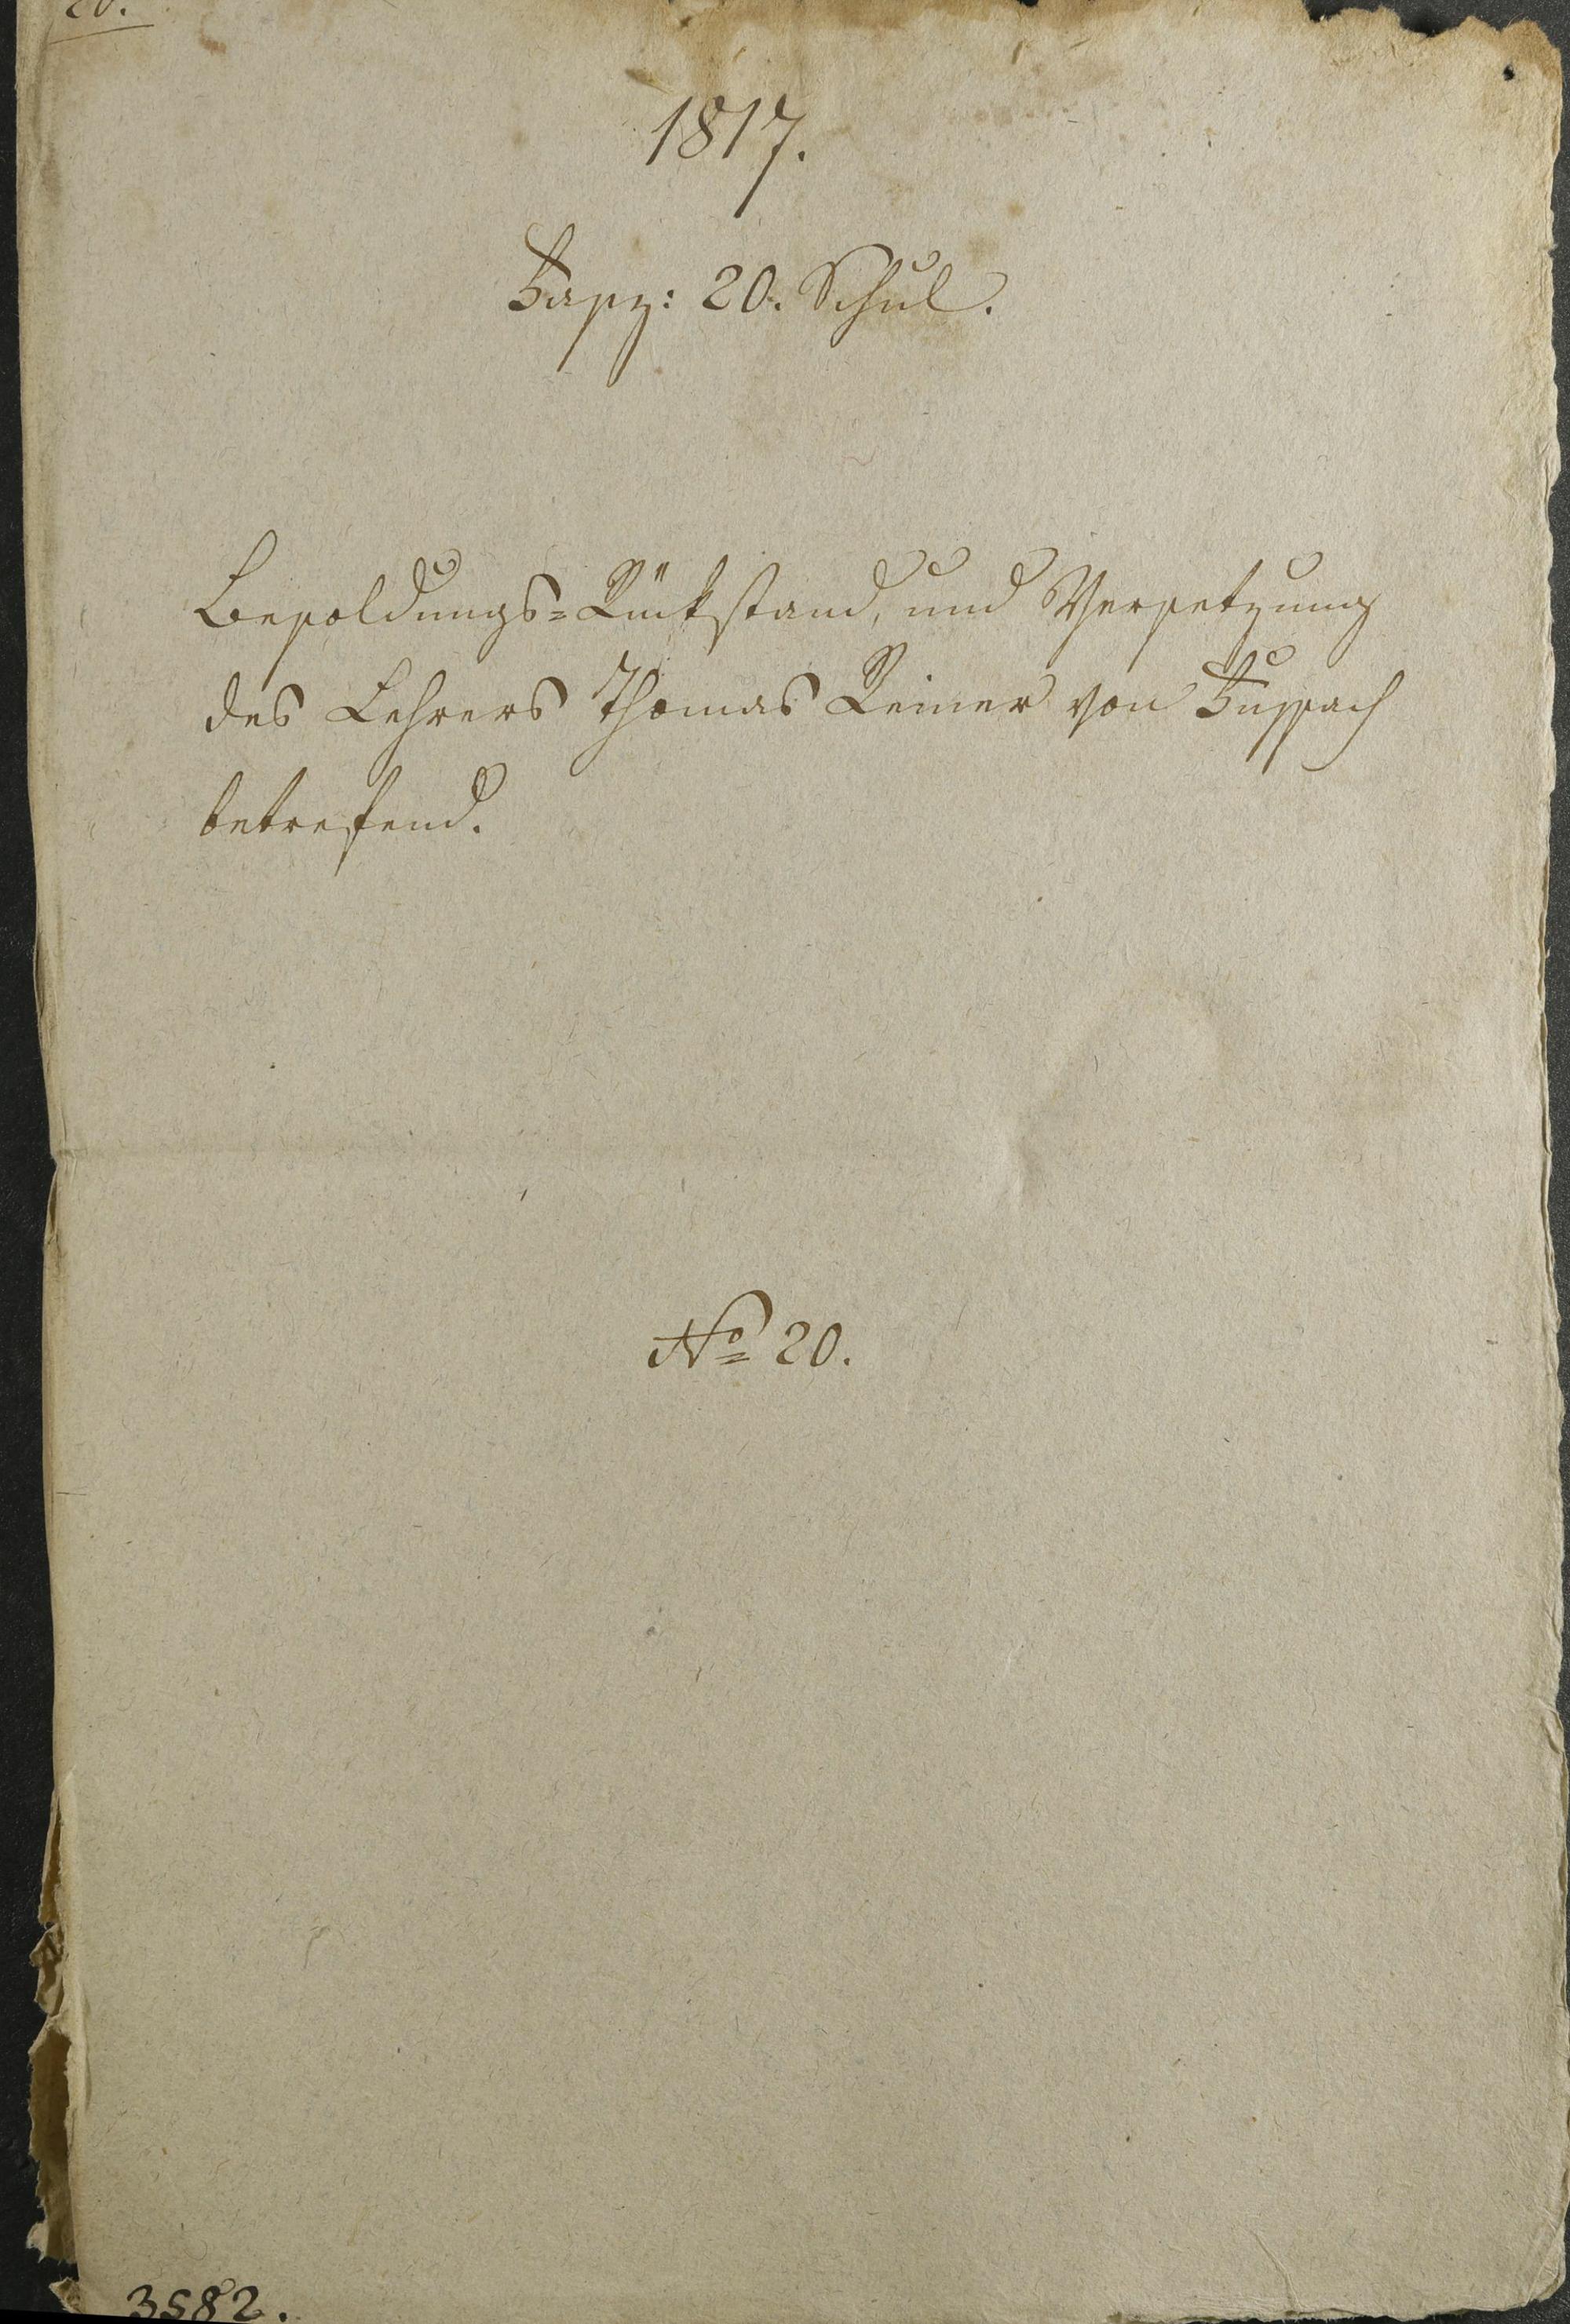 20.
1817.
Fasz: 20. Schul.
Besoldungs=Rückstand, und Versetzung
des Lehrers Thomas Reiner von Fussach
betrefend.
No 20.
3582.